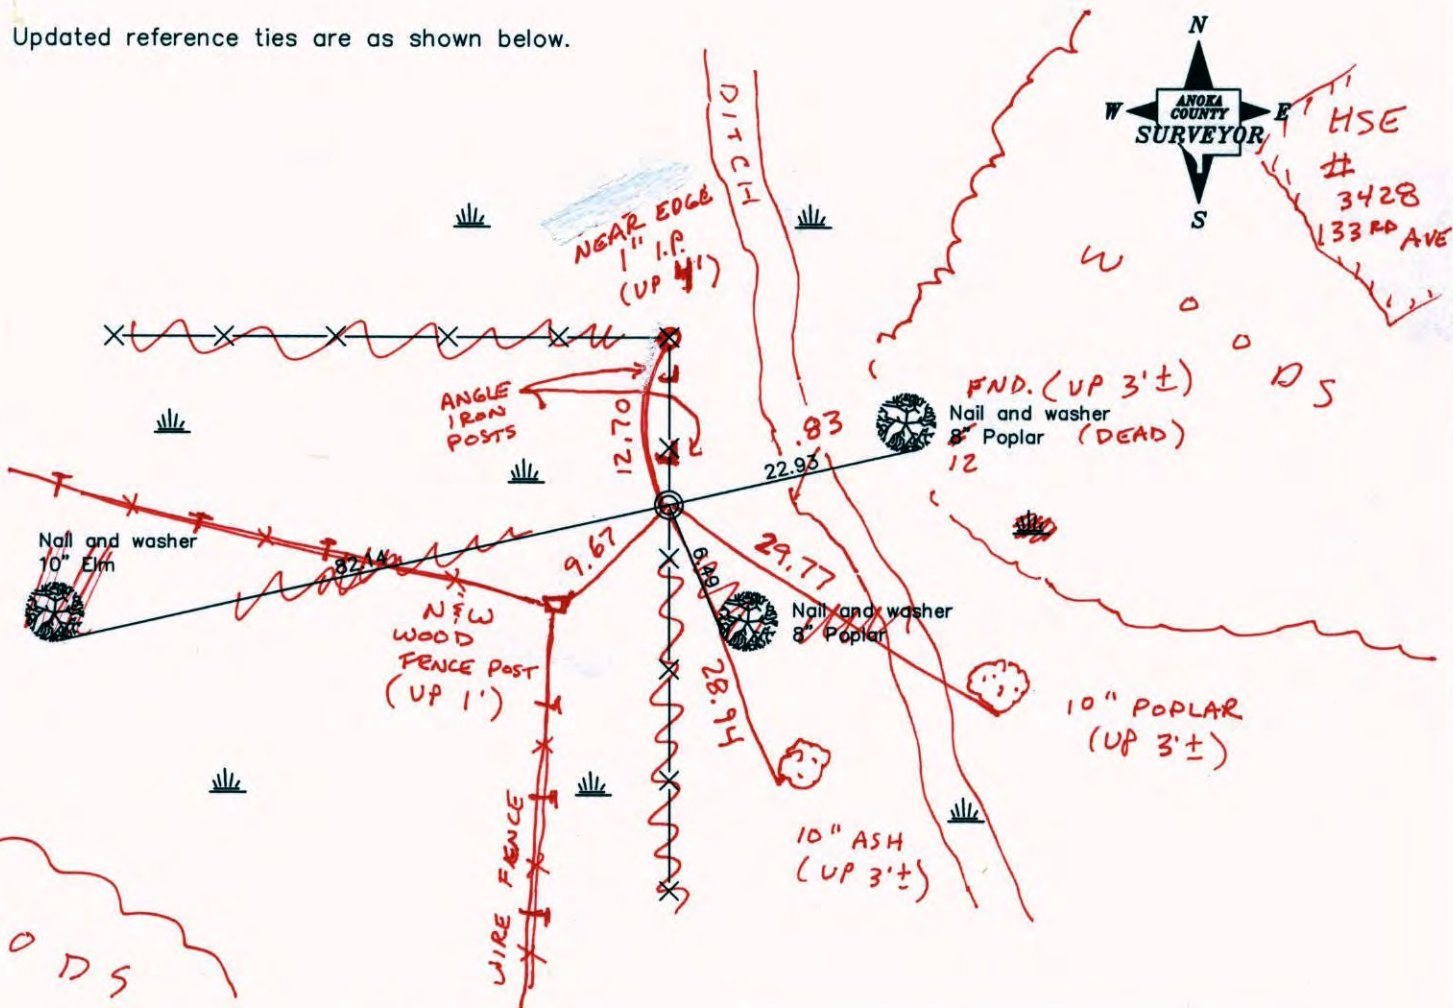 Updated reference ties are as shown below.
N
W
E
ANOKA
COUNTY
SURVEYOR
S
HSE
#
3428
133RD AVE
DITCH
NEAR EDGE
1" I.P.
(UP 4')
W
O
O
D S
ANGLE
IRON
POSTS
12.70
.83
22.93
FND. (UP 3'±)
Nail and washer
8" Poplar (DEAD)
12
Nail and washer
10" Elm
82.14
9.67
29.77
6.49
N&W
WOOD
FENCE POST
(UP 1')
Nail and washer
8" Poplar
28.94
10" POPLAR
(UP 3'±)
10" ASH
(UP 3'±)
WIRE FENCE
O D S